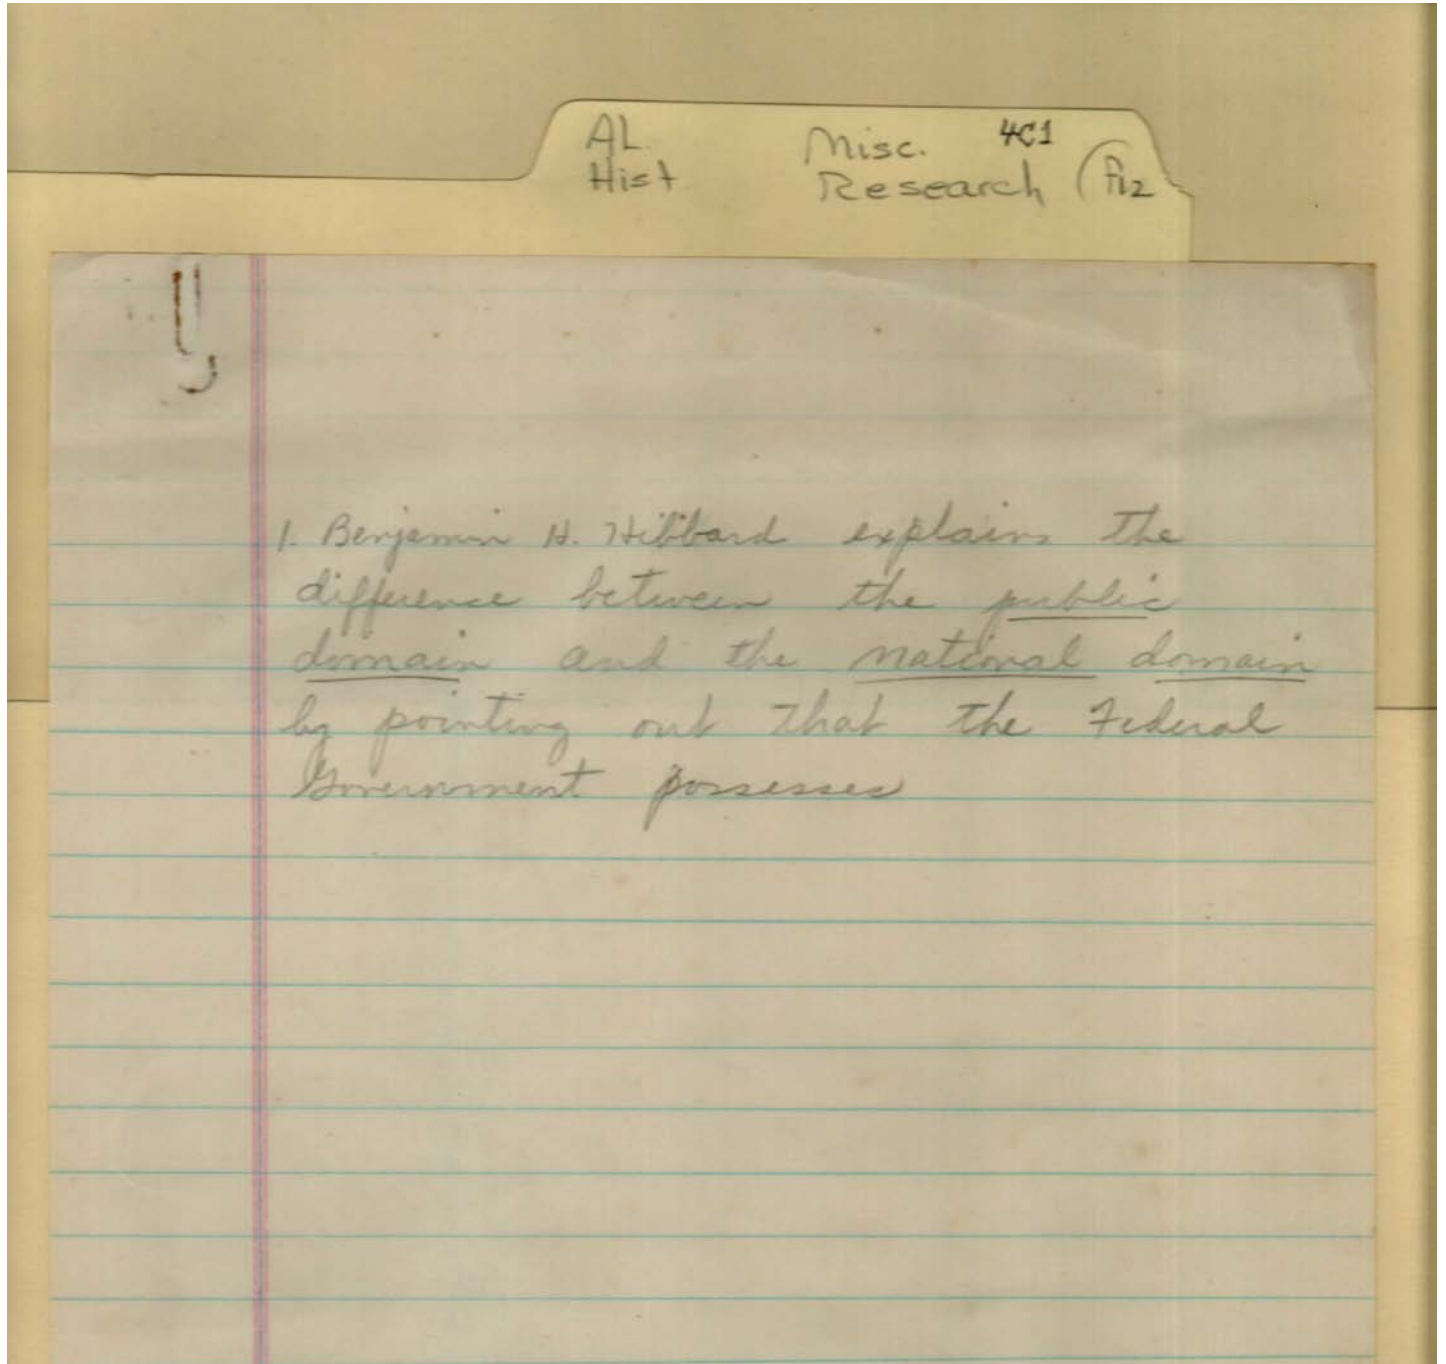 AL Misc. 4C1
Hist Research
1. Benjamin H. Hibbard explains the
difference between the public
domain and the national domain
by pointing out that the Federal
Government possesses